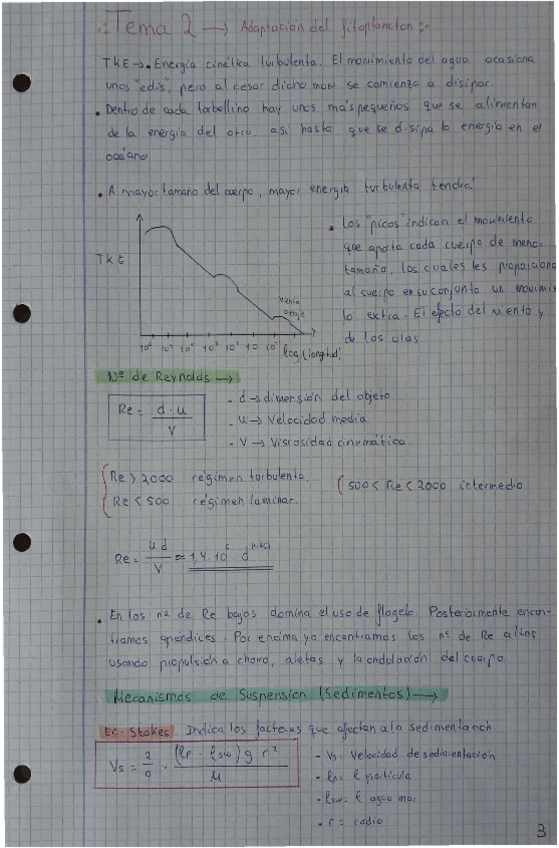 Tema 2 → Adaptación del fitoplancton
TKE → • Energía cinética turbulenta. El movimiento del agua ocasiona
unos "edis", pero al cesar dicho mov se comienza a disipar.
• Dentro de cada torbellino hay unos más pequeños que se alimentan
de la energía del otro, así hasta que se disipa la energía en el
océano.
• A mayor tamaño del cuerpo, mayor energía turbulenta tendrá
TKE
log (longitud)
• Los "picos" indican el movimiento
que aporta cada cuerpo de menor
tamaño, los cuales les proporciona
al cuerpo en su conjunto un movimien
to extra. El efecto del viento y
de las olas
Nº de Reynolds →
Re = d · u / V
- d → dimensión del objeto
- u → Velocidad media
- V → Viscosidad cinemática
Re > 2000 régimen turbulento.
Re < 500 régimen laminar.
500 < Re < 2000 intermedio
Re = u d / V ≈ 1,4 · 10
• En los nº de Re bajos domina el uso de flagelo. Posteriormente encon-
tramos apéndices. Por encima ya encontramos los nº de Re altos
usando propulsión a chorro, aletas y la ondulación del cuerpo
Mecanismos de Suspensión (Sedimentos) →
Ec. Stokes. Indica los factores que afectan a la sedimentación
Vs = 2/9 · (ρp - ρsw) g r² / μ
- Vs = Velocidad de sedimentación
- ρp = ρ partícula
- ρsw = ρ agua mar
- r = radio
3